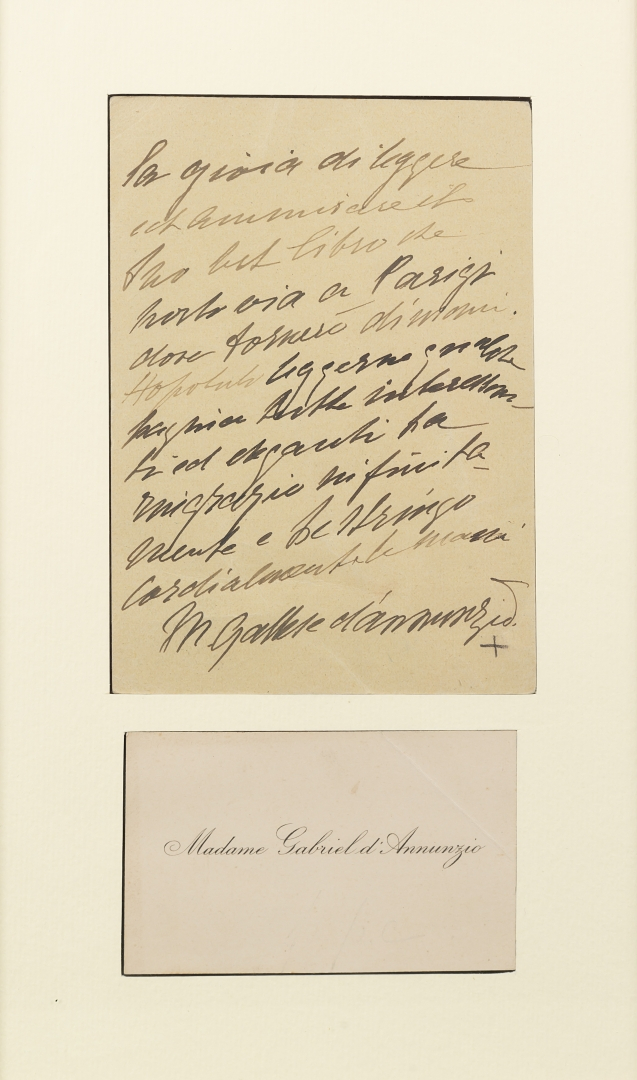 la gioia di leggere
ed ammirare il
Suo bel libro che
porto via a Parigi
dove tornerò domani.
leggerne qualche
pagina tutte interessan-
ti ed eleganti La
ringrazio infinita-
mente e Le stringo
cordialmente le mani
M Gallese d'Annunzio.
+
Madame Gabriel d'Annunzio